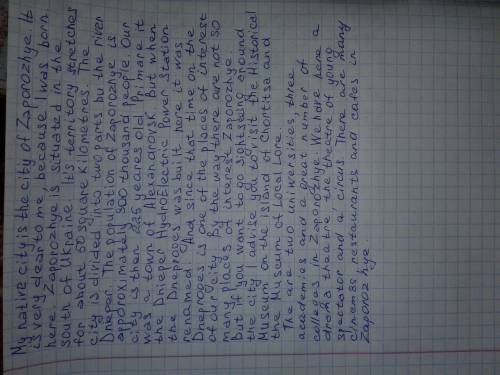 My native city is the city of Zaporozhye. It
is very dear to me, because I was born
here. Zaporozhye is situated in the
south of Ukraine. Its territory stretches
for about 50 square kilometres. The
city is divided into two parts bu the river
Dneper. The population of Zaporozhye is
approroximately 900 thousand people. Our
city is then 225 yeares old. Primare it
was a town of Alexandrovsk. But when
the Dnieper HydroElectric Power Station
the Dneproges was built here it was
renamed. And since that time on the
Dneproges is one of the places of interest
of our city. By the way there are not so
many places of interest Zaporozhye.
But if you want to go sightseeing around
the city advise you to visit the Historical
Museum on the island of Chortitsa and
the Museum of Local Lore.
The are two universities, three
academies and a great number of
collegas in Zaporozhye. We have here a
drama theatre, the theatre of young
spectator and a circus. There are many
cinemas, restaurants and cafes in
Zaporozhye.